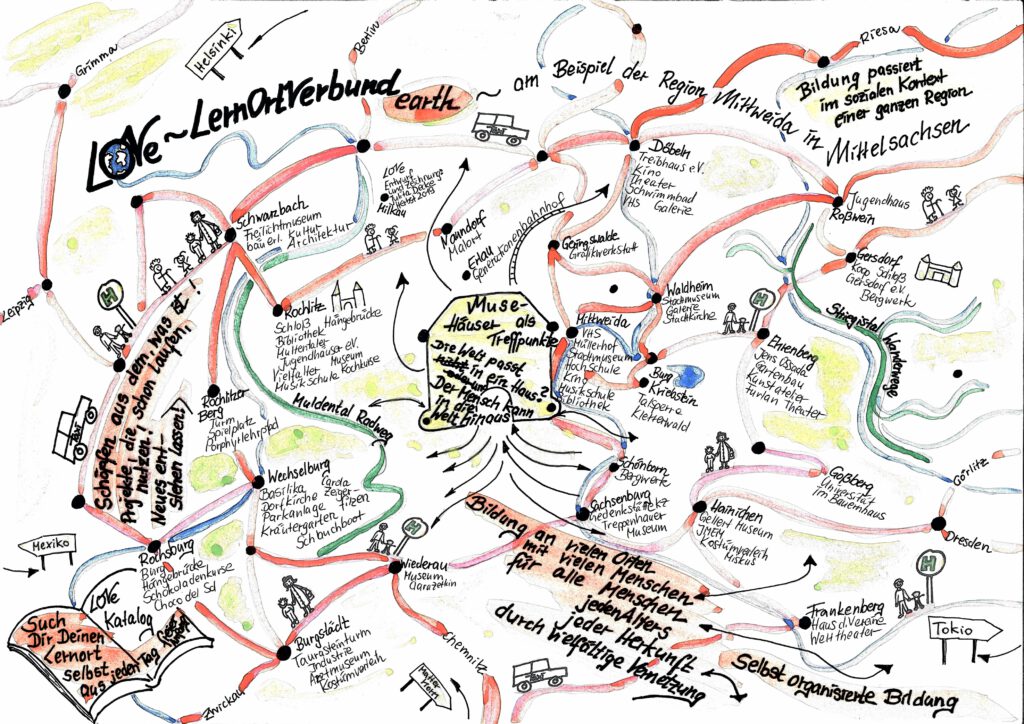 Grimma
Helsinki
Berlin
LOVe ~ LernOrtVerbund
earth ~ am Beispiel der Region Mittweida in
Mittelsachsen
Riesa
Bildung passiert
im sozialen Kontext
einer ganzen Region
LOVe
Entwurf
und Zeichnung
Herbst 2013
Milkau
Schwarzbach
Freilichtmuseum
bäuerl. Kultur
Architektur
Naundorf
Malort
Erlau
Generationenbahnhof
Döbeln
Treibhaus e.V.
Kino
Theater
Schwimmbad
VHS Galerie
Jugendhaus
Roßwein
Geringswalde
Grafikwerkstatt
Gersdorf
Schloß
Gersdorf e.V.
Bergwerk
Leipzig
H
Rochlitz
Schloß Hängebrücke
Bibliothek
Muldental
Jugendhäuser e.V.
Vielfalter Museum
Musikschule Kochkurse
Muse-
Häuser als
Treffpunkte
Die Welt passt
in Ein Haus?
Der Mensch kann
in die
Welt hinaus
Mittweida
VHS
Müllerhof
Stadtmuseum
Hochschule
Kino
Musikschule
Bibliothek
Waldheim
Stadtmuseum
Galerie
Stadtkirche
Burg
Kriebstein
Talsperre
Kletterwald
H
Ehrenberg
Gartenbau
Kunstatelier
Theater
Striegistal
Wanderwege
Schöpfen aus dem, was ist!
Projekte, die schon laufen,
nutzen!
Neues ent-
stehen lassen!
Rochlitzer
Berg
Turm
Spielplatz
Porphyrlehrpfad
Muldental Radweg
Wechselburg
Basilika
Dorfkirche Zeiger
Parkanlage Filzen
Kräutergarten
Schulboot
Schönborn
Bergwerk
Sachsenburg
Gedenkstätte
Treppenhauer
Museum
Hainichen
Gellert Museum
Kostümverleih
Goßberg
Universität
im Bauernhaus
Görlitz
Dresden
Mexiko
Rochsburg
Burg
Hängebrücke
Schokoladenkurse
Choco del Sol
H
Wiederau
Museum
Clara Zetkin
Bildung
an vielen Orten
mit vielen Menschen
für alle Menschen
jeden Alters
jeder Herkunft
durch vielfältige Vernetzung
H
LOVe
Katalog
Such
Dir Deinen
Lernort
selbst
aus jeden Tag
Burgstädt
Taurasteinturm
Industrie
Museum
Kostümverleih
Chemnitz
Zwickau
Frankenberg
Haus d. Vereine
Welttheater
Tokio
Selbst organisierte Bildung